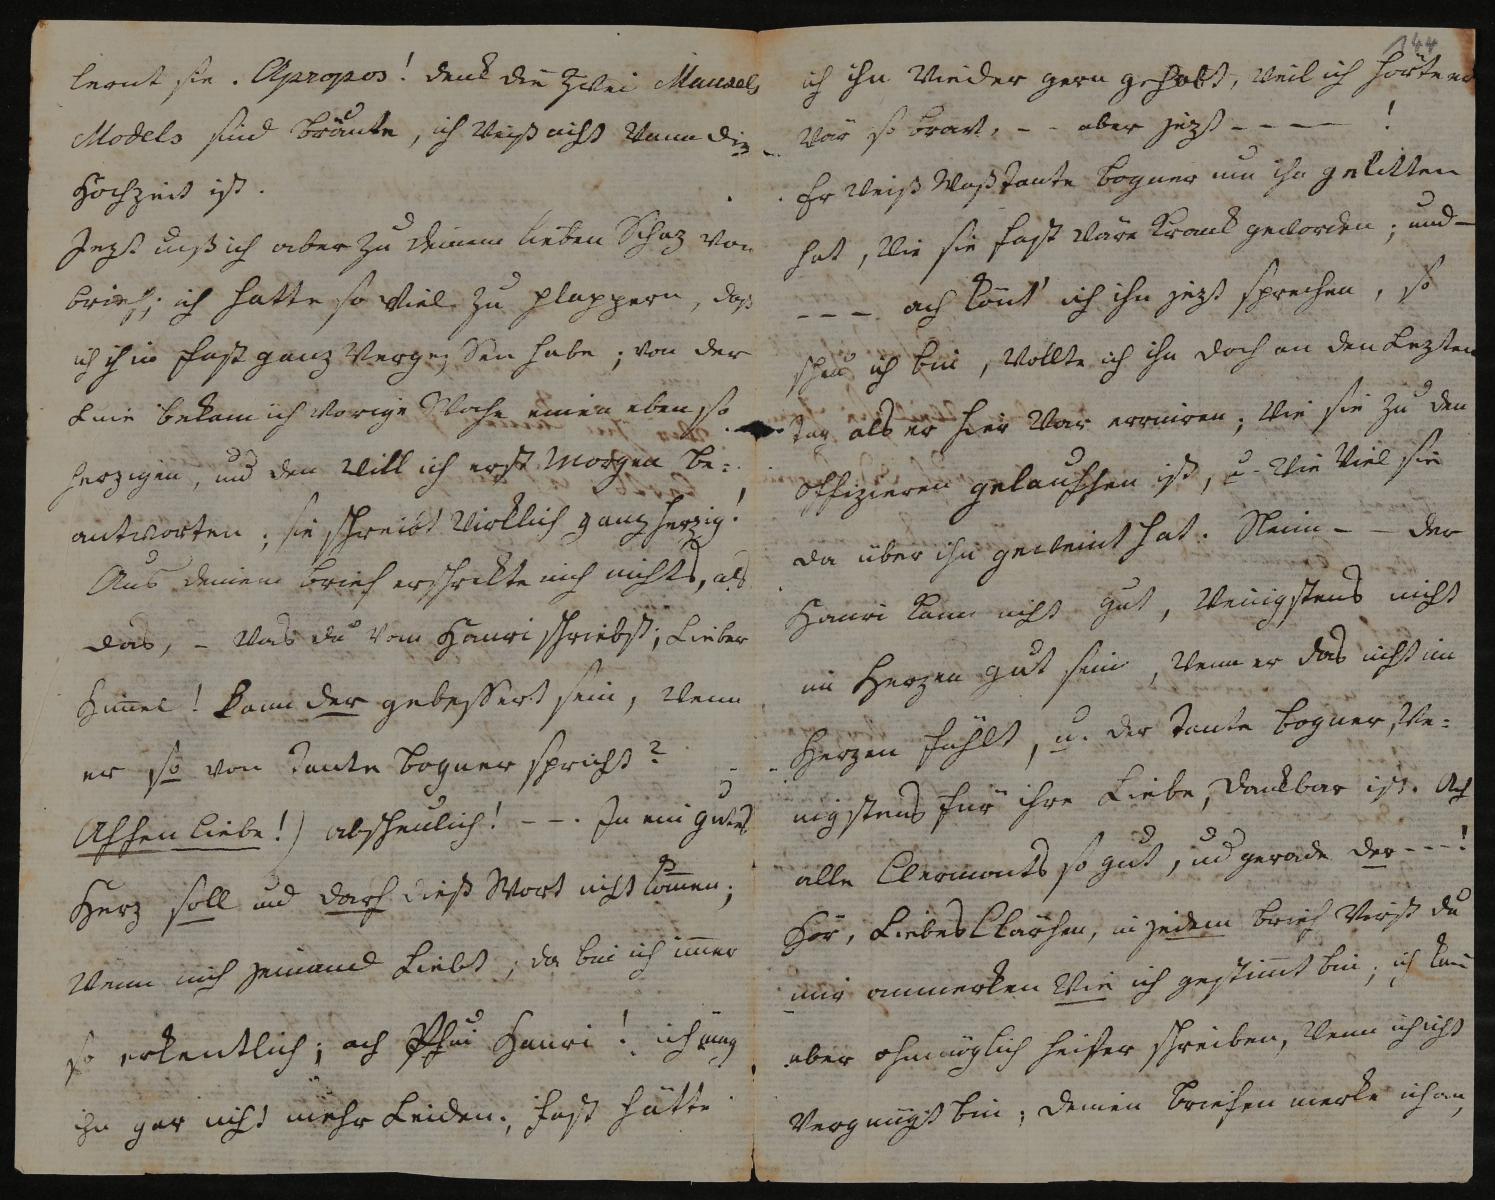 lernt sie. Apropos! denk die zwei Mamsels
Models sind bräute, ich weiß nicht wann die
Hochzeit ist.
Jezt muß ich aber zu deinem lieben Schaz von
brief; ich hatte so viel zu plappern, daß
ich ihn fast ganz vergessen habe; von der
Line bekam ich vorige Woche einen eben so
herzigen, und den will ich erst Morgen be=
antworten; sie schreibt wirklich ganz herzig!
Aus deinem brief erschrekte mich nichts, als
das, – was du vom Hanri schriebst; Lieber
Himel! kann der gebessert sein, wenn
er so von Tante bogner spricht?
Affen liebe!) abscheulich! – – . In ein gutes
Herz soll und darf dieß Wort nicht komen;
wenn mich jemand Liebt, da bin ich imer
so erkentlich; ach Pfui Hanri! ich mag
ihn gar nicht mehr Leiden; fast hätte
144
ich ihn wieder gern gehabt, weil ich hörte er
wär so brav, – – aber jezt – – – – !
Er weiß was Tante bogner um ihn gelitten
hat, wie sie fast wäre krank geworden; und –
– – – ach könt' ich ihn jezt sprechen, so
scheu ich bin, wollte ich ihn doch an den Lezten
Tag als er hier war erriniren; wie sie zu den
Offizieren gelauffen ist, u. wie viel sie
da über ihn geweint hat. Nein – – der
Hanri kann nicht gut, wenigstens nicht
im Herzen gut sein, wenn er das nicht im
Herzen fühlt, u. der Tante bogner, we=
nigstens für ihre Liebe, dankbar ist. Ach
alle Clermonts so gut, und gerade der – – – !
Hör, Liebes Clärchen, in jedem brief wirst du
mir anmerken wie ich gestimt bin; ich kan
aber ohnmöglich heiter schreiben, wenn ich nicht
vergnügt bin; deinen briefen merke ich an,